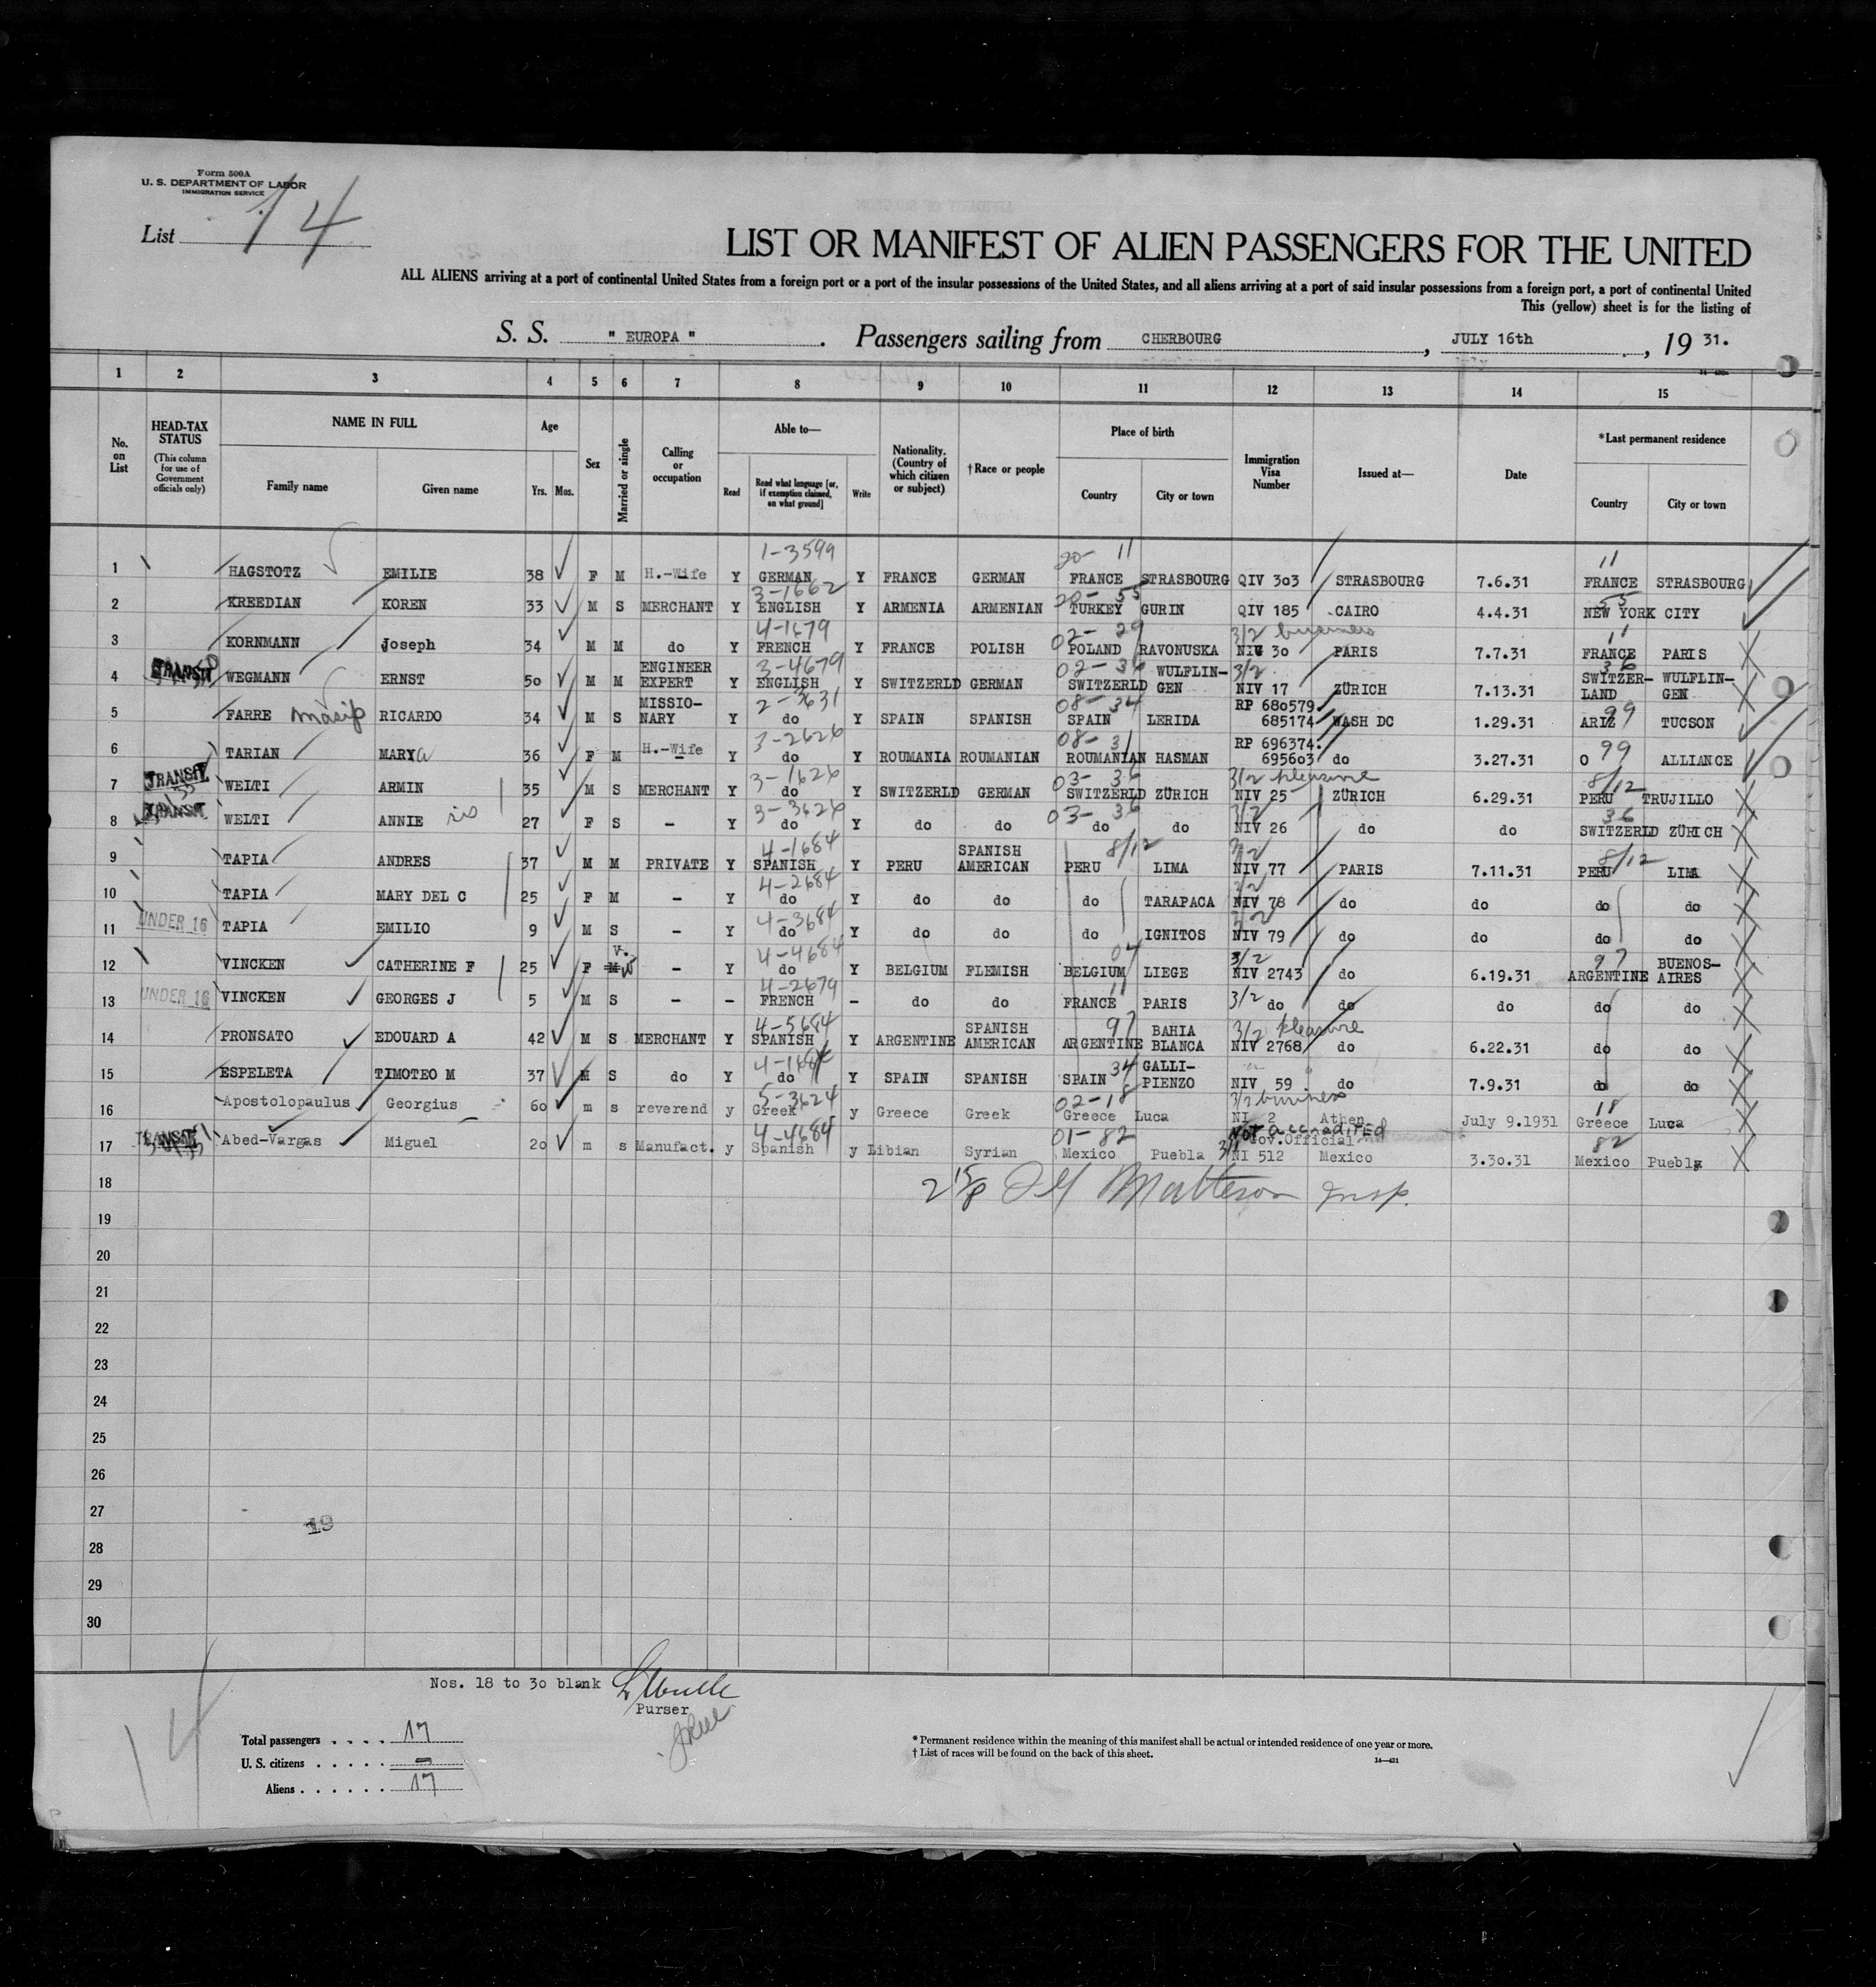 Form 500A
U. S. DEPARTMENT OF LABOR
IMMIGRATION SERVICE
List 14
LIST OR MANIFEST OF ALIEN PASSENGERS FOR THE UNITED
ALL ALIENS arriving at a port of continental United States from a foreign port or a port of the insular possessions of the United States, and all aliens arriving at a port of said insular possessions from a foreign port, a port of continental United
This (yellow) sheet is for the listing of
S. S. " EUROPA ". Passengers sailing from CHERBOURG, JULY 16th, 19 31.
1 2 3 4 5 6 7 8 9 10 11 12 13 14 15
No. on List
HEAD-TAX STATUS (This column for use of Government officials only)
NAME IN FULL Family name Given name
Age Yrs. Mos.
Sex
Married or single
Calling or occupation
Able to— Read Read what language [or, if exemption claimed, on what ground] Write
Nationality. (Country of which citizen or subject)
†Race or people
Place of birth Country City or town
Immigration Visa Number
Issued at—
Date
*Last permanent residence Country City or town
1-3599 20- 11 11
1 HAGSTOTZ EMILIE 38 F M H.-Wife Y GERMAN Y FRANCE GERMAN FRANCE STRASBOURG QIV 303 STRASBOURG 7.6.31 FRANCE STRASBOURG
3-1662 20- 55 55
2 KREEDIAN KOREN 33 M S MERCHANT Y ENGLISH Y ARMENIA ARMENIAN TURKEY GURIN QIV 185 CAIRO 4.4.31 NEW YORK CITY
4-1679 02- 29 3/2 business 11
3 KORNMANN Joseph 34 M M do Y FRENCH Y FRANCE POLISH POLAND RAVONUSKA NIV 30 PARIS 7.7.31 FRANCE PARIS
3-4679 02- 36 3/2 36
4 TRANSIT WEGMANN ERNST 50 M M ENGINEER EXPERT Y ENGLISH Y SWITZERLD GERMAN SWITZERLD WULFLIN- GEN NIV 17 ZÜRICH 7.13.31 SWITZER- LAND WULFLIN- GEN
2-3631 08- 34 99
5 FARRE Masip RICARDO 34 M S MISSIO- NARY Y do Y SPAIN SPANISH SPAIN LERIDA RP 680579 685174 WASH DC 1.29.31 ARIZ TUCSON
3-2626 08- 31 99
6 TARIAN MARYa 36 F M H.-Wife Y do Y ROUMANIA ROUMANIAN ROUMANIAN HASMAN RP 696374 695603 do 3.27.31 O ALLIANCE
3-1626 03- 36 3/2 pleasure 8/12
7 TRANSIT WELTI ARMIN 35 M S MERCHANT Y do Y SWITZERLD GERMAN SWITZERLD ZÜRICH NIV 25 ZÜRICH 6.29.31 PERU TRUJILLO
3-3626 03- 36 3/2 36
8 TRANSIT WELTI ANNIE 27 F S - Y do Y do do do do NIV 26 do do SWITZERLD ZÜRICH
4-1684 8/12 3/2 8/12
9 TAPIA ANDRES 37 M M PRIVATE Y SPANISH Y PERU SPANISH AMERICAN PERU LIMA NIV 77 PARIS 7.11.31 PERU LIMA
4-2684 3/2
10 TAPIA MARY DEL C 25 F M - Y do Y do do do TARAPACA NIV 78 do do do do
4-3684 3/2
11 UNDER 16 TAPIA EMILIO 9 M S - Y do Y do do do IGNITOS NIV 79 do do do do
4-4684 04 3/2 97
12 VINCKEN CATHERINE F 25 F M - Y do Y BELGIUM FLEMISH BELGIUM LIEGE NIV 2743 do 6.19.31 ARGENTINE BUENOS- AIRES
4-2679 11
13 UNDER 16 VINCKEN GEORGES J 5 M S - - FRENCH - do do FRANCE PARIS 3/2 do do do do do
4-5684 97 3/2 pleasure
14 PRONSATO EDOUARD A 42 M S MERCHANT Y SPANISH Y ARGENTINE SPANISH AMERICAN ARGENTINE BAHIA BLANCA NIV 2768 do 6.22.31 do do
34
15 ESPELETA TIMOTEO M 37 M S do Y do Y SPAIN SPANISH SPAIN GALLI- PIENZO NIV 59 do 7.9.31 do do
5-3624 02-18 3/2 business 18
16 Apostolopaulus Georgius 60 m s reverend y Greek y Greece Greek Greece Luca NI 2 Athen July 9.1931 Greece Luca
4-4684 01-82 Not accredited Gov.Official 82
17 TRANSIT Abed-Vargas Miguel 20 m s Manufact. y Spanish y Libian Syrian Mexico Puebla NI 512 Mexico 3.30.31 Mexico Puebla
18 Matteson Insp.
19
20
21
22
23
24
25
26
27
19
28
29
30
Nos. 18 to 30 blank
Purser
14
Total passengers . . . . 17
U. S. citizens . . . . . -
Aliens . . . . . . 17
* Permanent residence within the meaning of this manifest shall be actual or intended residence of one year or more.
† List of races will be found on the back of this sheet.
14—421